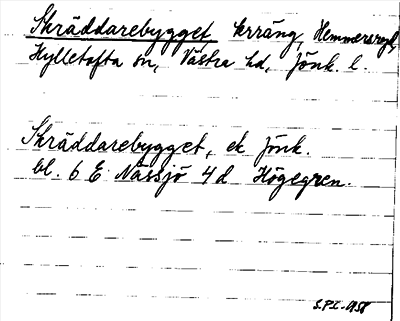 Skräddarebygget terräng, Hemmersryd,
Hylletofta sn, Västra hd, Jönk. l.
Skräddarebygget, ek Jönk.
bl. 6 E Nässjö 4 d Högegren.
S.P.L. 1958